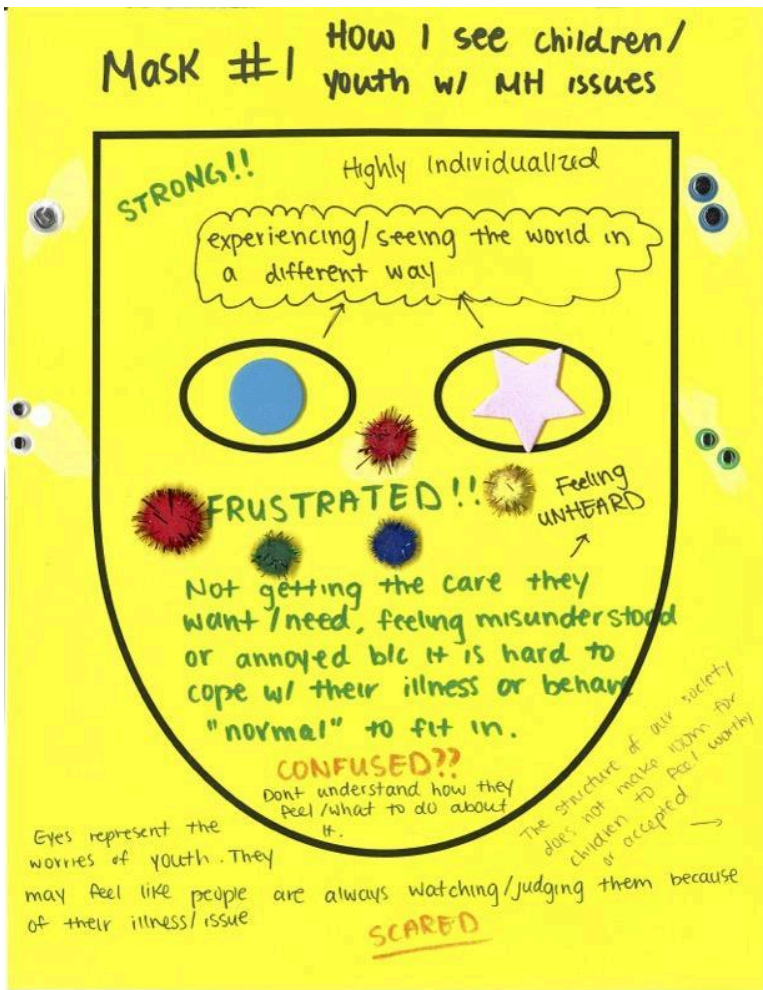 Mask #1 How I see children/
youth w/ MH issues
STRONG!!
Highly Individualized
experiencing/seeing the world in
a different way
FRUSTRATED!!
Feeling
UNHEARD
Not getting the care they
want/need, feeling misunderstood
or annoyed b/c it is hard to
cope w/ their illness or behave
"normal" to fit in.
CONFUSED??
Dont understand how they
feel/what to do about
it.
The structure of our society
does not make room for
children to feel worthy
or accepted
Eyes represent the
worries of youth. They
may feel like people are always watching/judging them because
of their illness/issue
SCARED